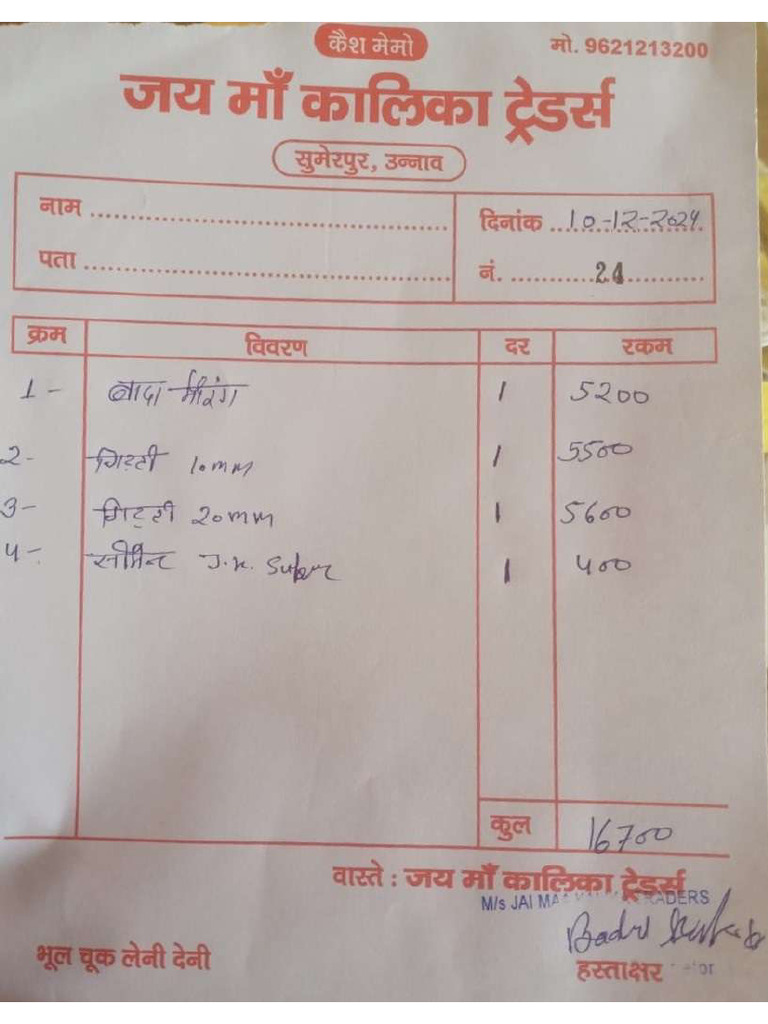 कैश मेमो मो. 9621213200
जय माँ कालिका ट्रेडर्स
सुमेरपुर, उन्नाव
नाम
दिनांक 10-12-2024
पता
नं. 24
क्रम विवरण दर रकम
1- बादा मौरंग 1 5200
2- गिट्टी 10mm 1 5500
3- गिट्टी 20mm 1 5600
4- सीमेन्ट J.K. Super 1 400
कुल 16700
वास्ते : जय माँ कालिका ट्रेडर्स
M/s JAI MA
भूल चूक लेनी देनी
हस्ताक्षर